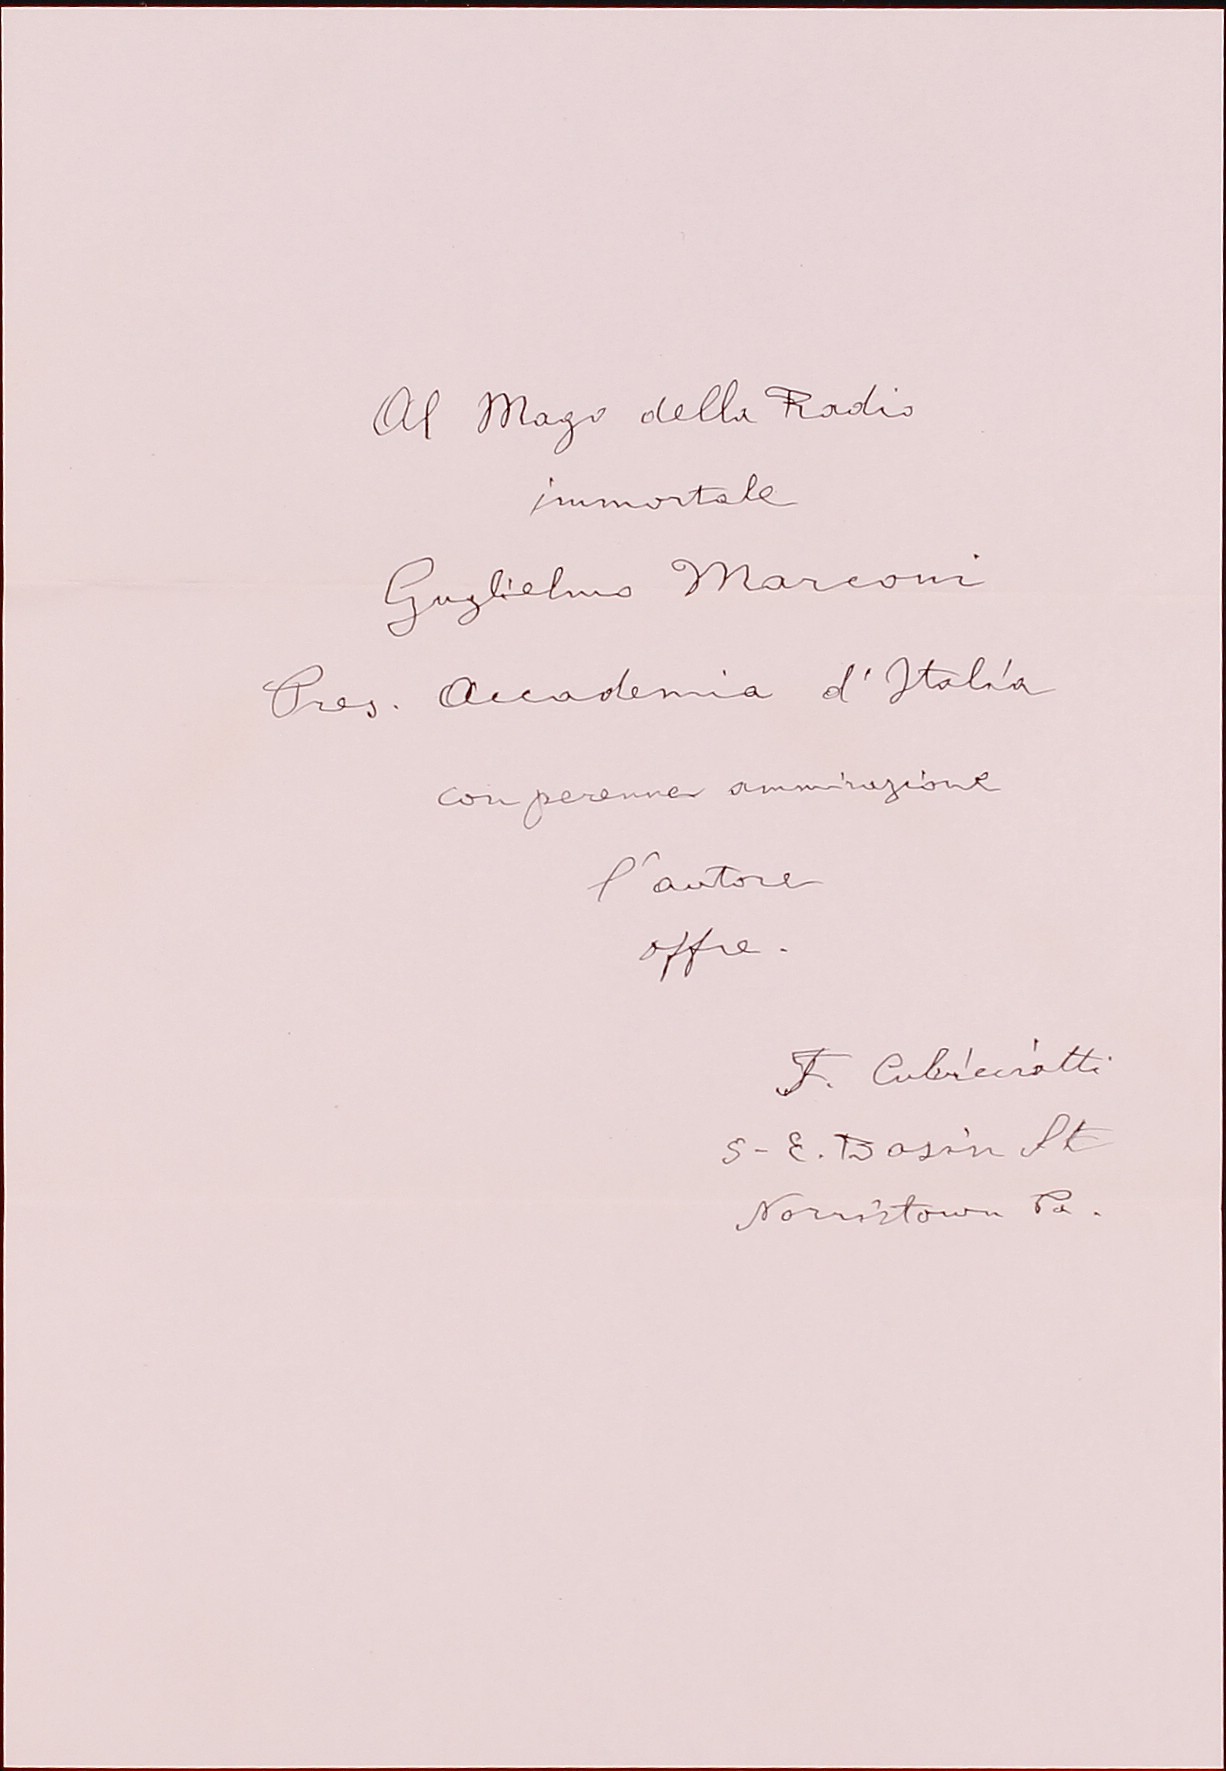 Al Mago della Radio
immortale
Guglielmo Marconi
Pres. Accademia d'Italia
con perenne ammirazione
l'autore
offre.
F. Cubicciotti
5-E. Basin St
Norristown Pa.